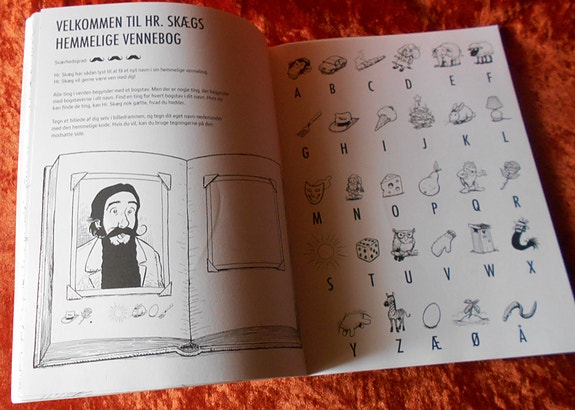 VELKOMMEN TIL HR. SKÆGS
HEMMELIGE VENNEBOG
Sværhedsgrad:
Hr. Skæg har sådan lyst til at få et nyt navn i sin hemmelige vennebog.
Hr. Skæg vil gerne være ven med dig!
Alle ting i verden begynder med et bogstav. Men der er nogle ting, der begynder
med bogstaverne i dit navn. Find en ting for hvert bogstav i dit navn. Hvis du
kan finde de ting, kan Hr. Skæg nok gætte, hvad du hedder.
Tegn et billede af dig selv i billedrammen, og tegn dit eget navn nedenunder
med den hemmelige kode. Hvis du vil, kan du bruge tegningerne på den
modsatte side.
A B C D E F
G H I J K L
M N O P Q R
S T U V W X
Y Z Æ Ø Å